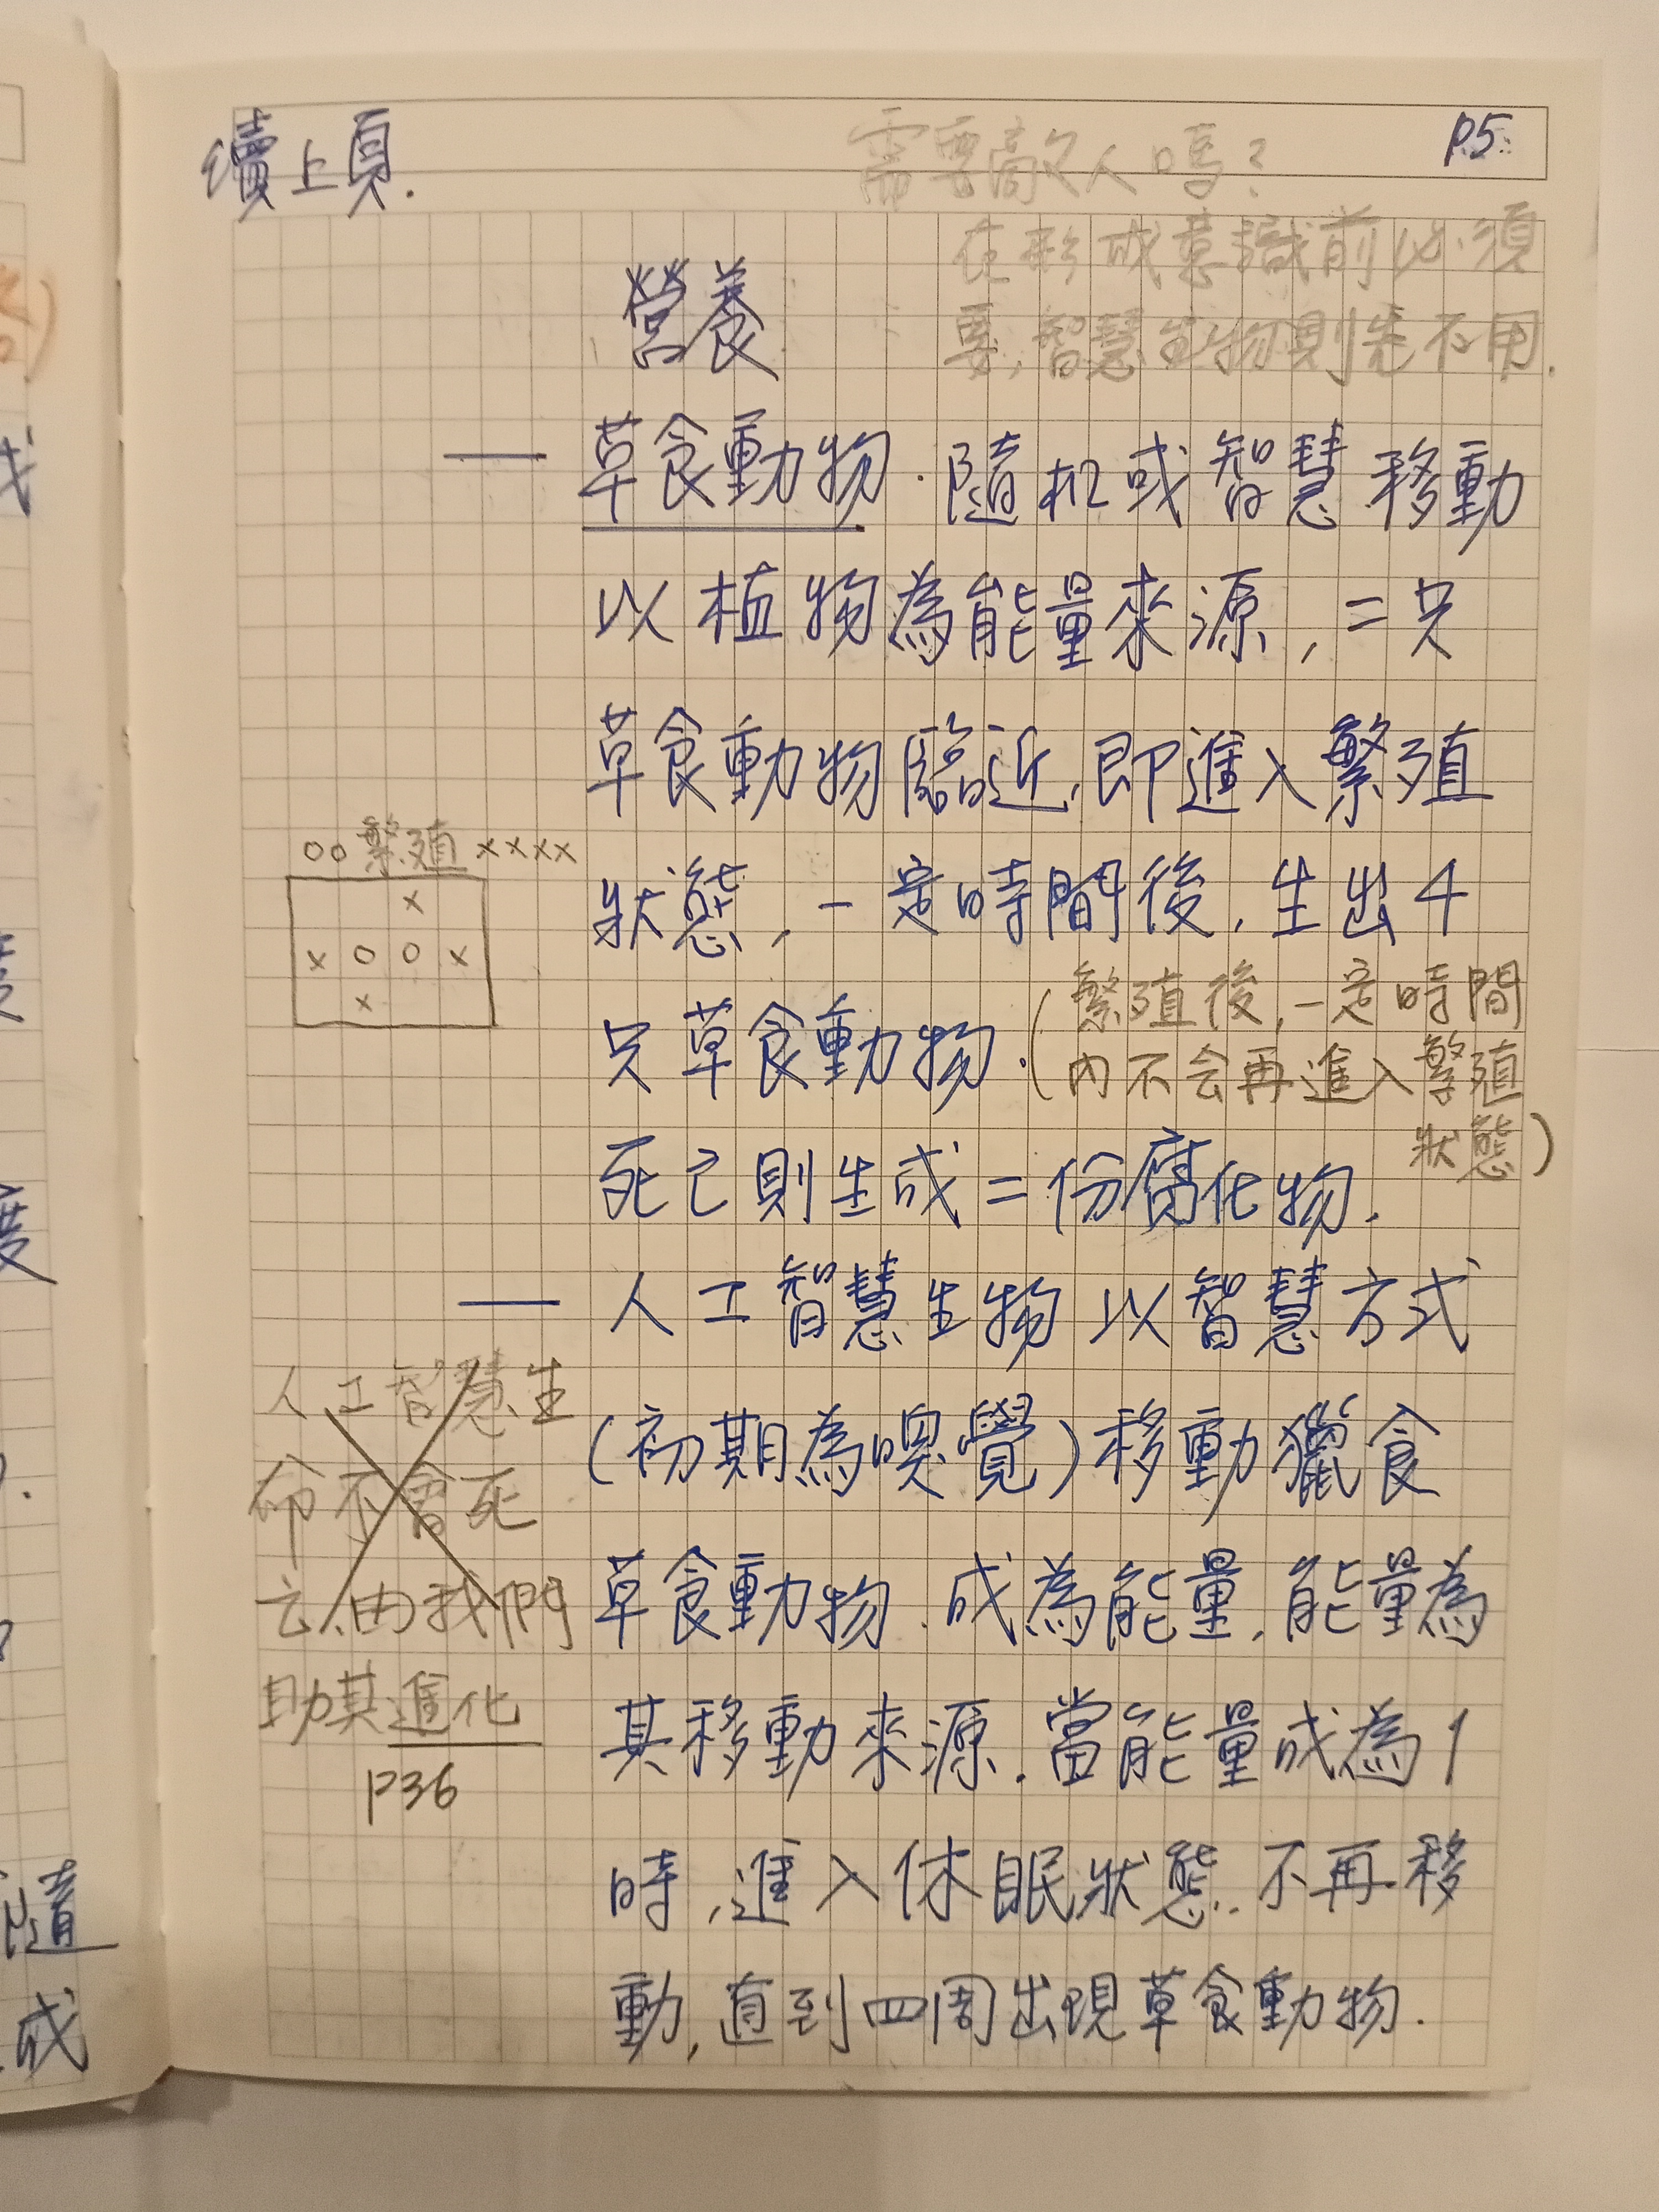 續上頁.
P5
需要敵人嗎?
在形成意識前必須
要,智慧生物則先不用.
營養
— 草食動物.隨机或智慧移動
以植物為能量來源,二只
草食動物臨近,即進入繁殖
狀態,一定時間後,生出4
只草食動物.(繁殖後,一定時間
內不会再進入繁殖
狀態)
死亡則生成二份腐化物.
oo繁殖xxxx
x
x o o x
x
— 人工智慧生物 以智慧方式
(初期為嗅覺)移動獵食
草食動物.成為能量,能量為
其移動來源.當能量成為1
時,進入休眠狀態.不再移
動,直到四周出現草食動物.
人工智慧生
命不會死
亡.由我們
助其進化
P36